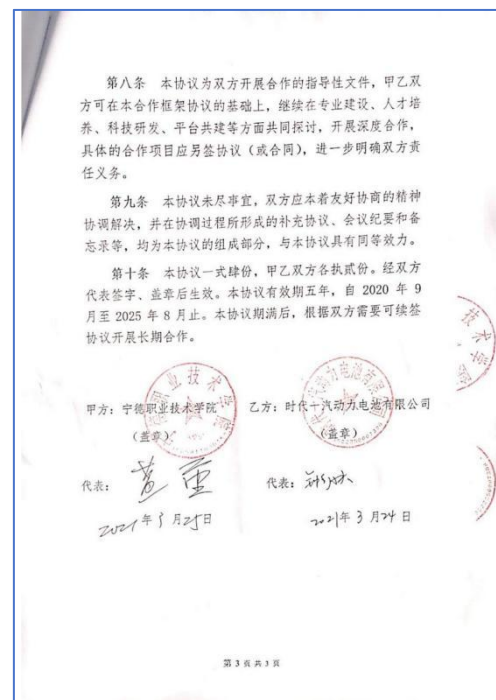 第八条 本协议为双方开展合作的指导性文件，甲乙双
方可在本合作框架协议的基础上，继续在专业建设、人才培
养、科技研发、平台共建等方面共同探讨，开展深度合作，
具体的合作项目应另签协议（或合同），进一步明确双方责
任义务。
第九条 本协议未尽事宜，双方应本着友好协商的精神
协调解决，并在协调过程所形成的补充协议、会议纪要和备
忘录等，均为本协议的组成部分，与本协议具有同等效力。
第十条 本协议一式肆份，甲乙双方各执贰份。经双方
代表签字、盖章后生效。本协议有效期五年，自 2020 年 9
月至 2025 年 8 月止。本协议期满后，根据双方需要可续签
协议开展长期合作。
甲方：宁德职业技术学院 乙方：时代一汽动力电池有限公司
（盖章） （盖章）
代表： 代表：
2021年3月25日 2021年3月24日
第 3 页 共 3 页